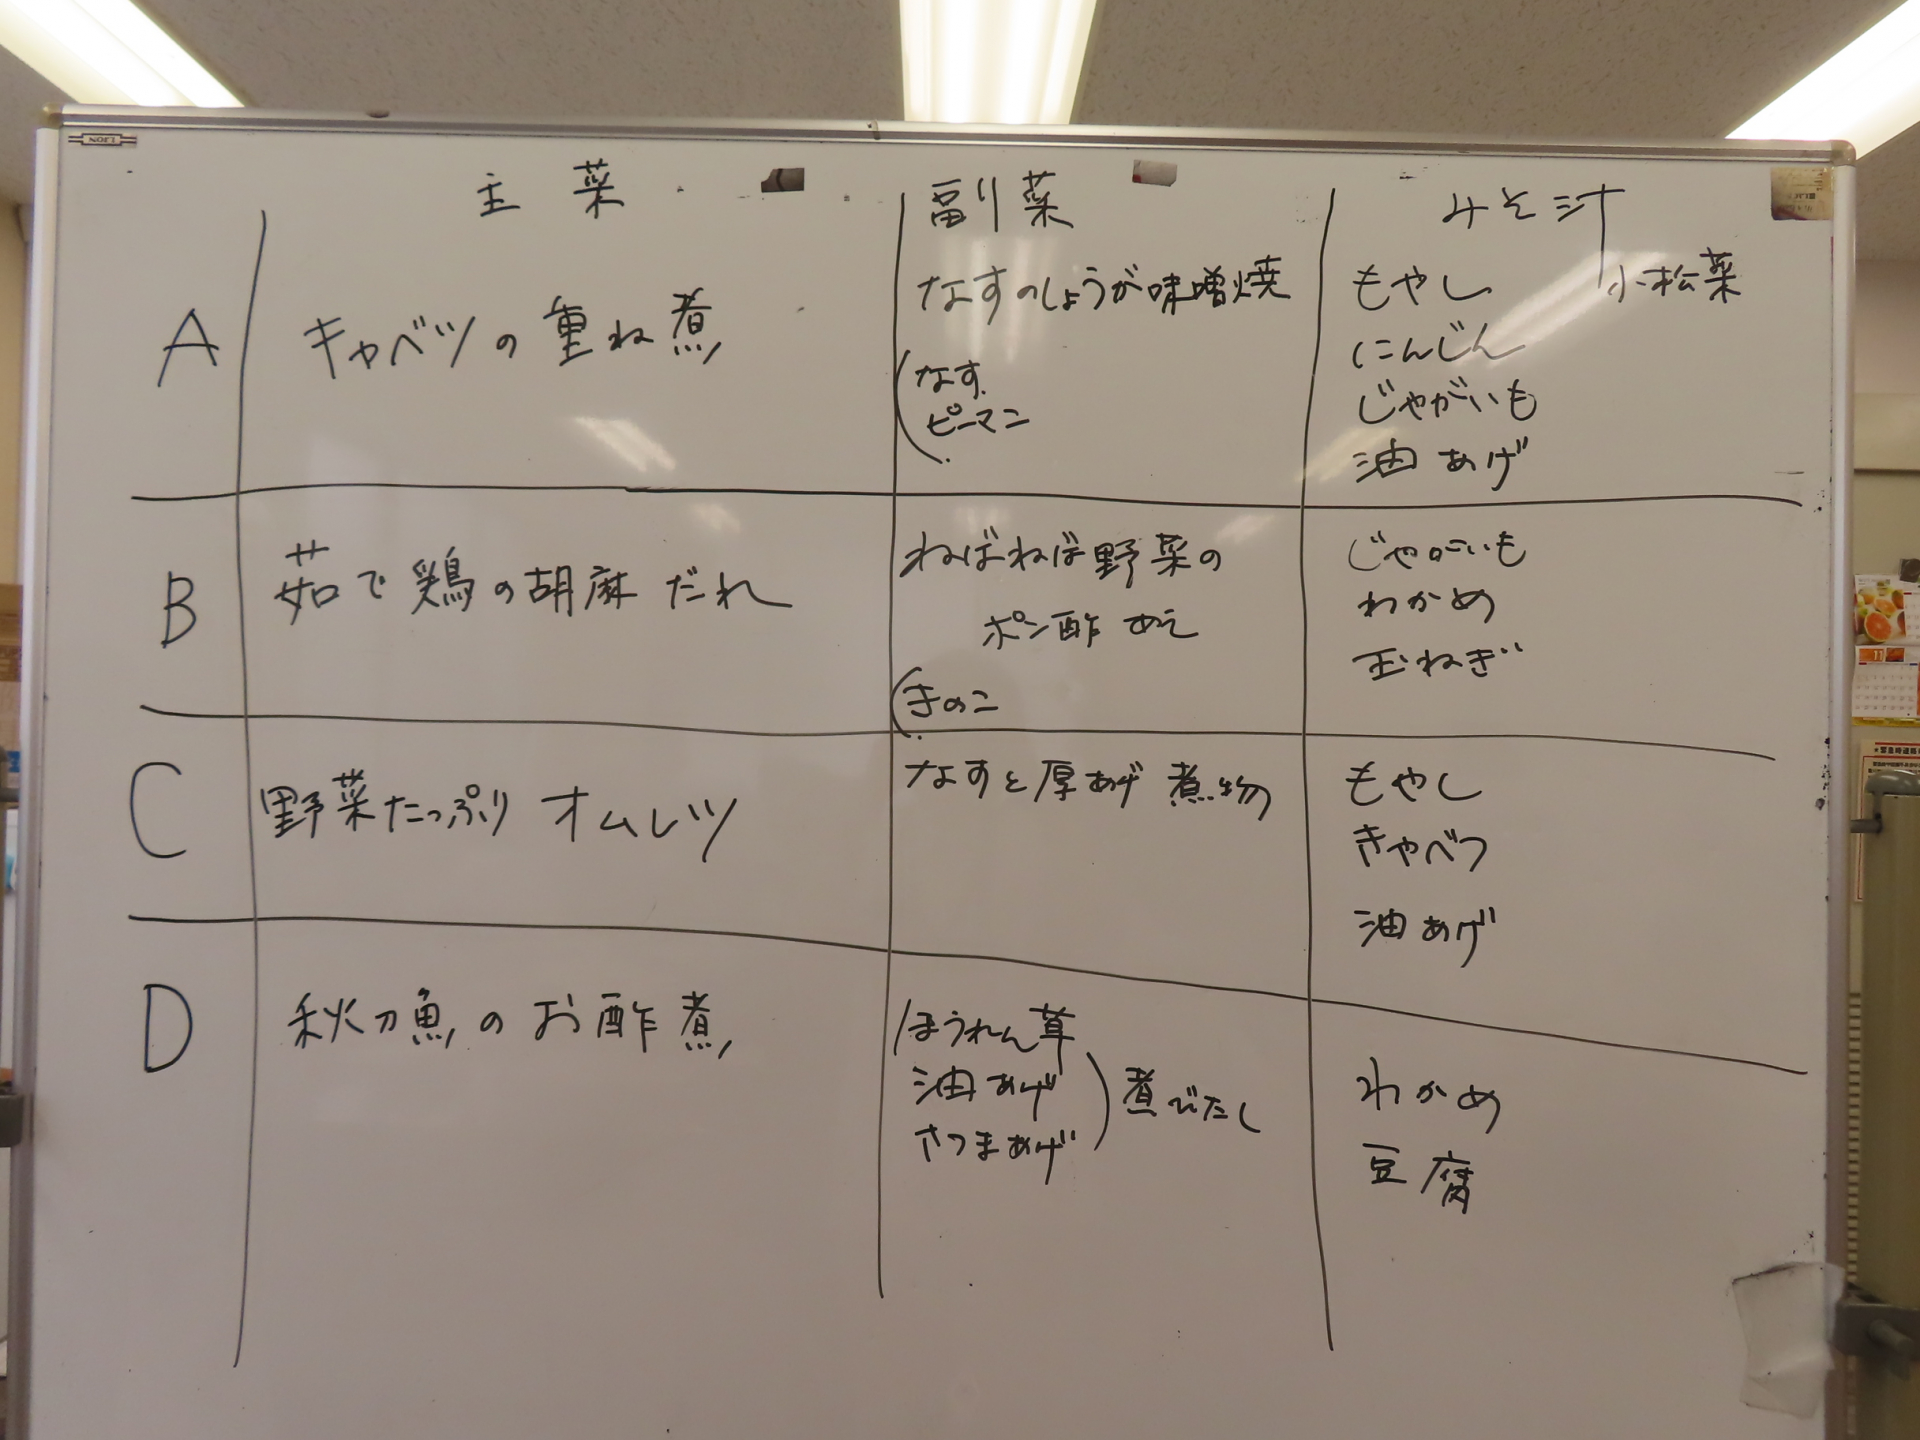 主菜 副菜 みそ汁
A
キャベツの重ね煮
なすのしょうが味噌焼
なす
ピーマン
もやし 小松菜
にんじん
じゃがいも
油あげ
B
茹で鶏の胡麻だれ
ねばねば野菜の
ポン酢あえ
きのこ
じゃがいも
わかめ
玉ねぎ
C
野菜たっぷりオムレツ
なすと厚あげ煮物
もやし
きゃべつ
油あげ
D
秋刀魚のお酢煮
ほうれん草
油あげ
さつまあげ
煮びたし
わかめ
豆腐
LION
11